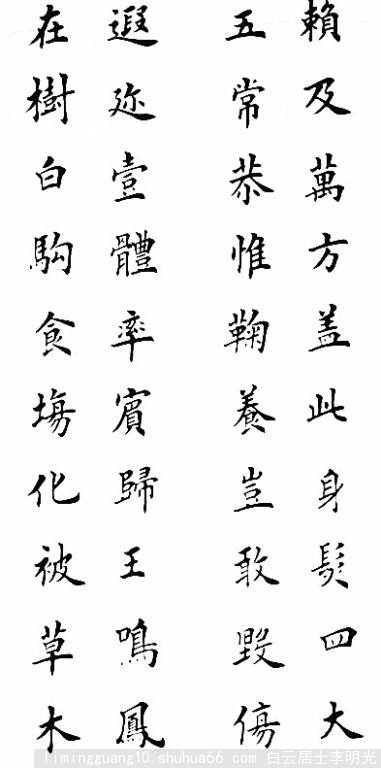 遐迩壹體率賓歸王鳴鳳
在樹白駒食塲化被草木
賴及萬方盖此身髮四大
五常恭惟鞠養豈敢毀傷
limingguang10.shuhua66.com 白云居士李明光